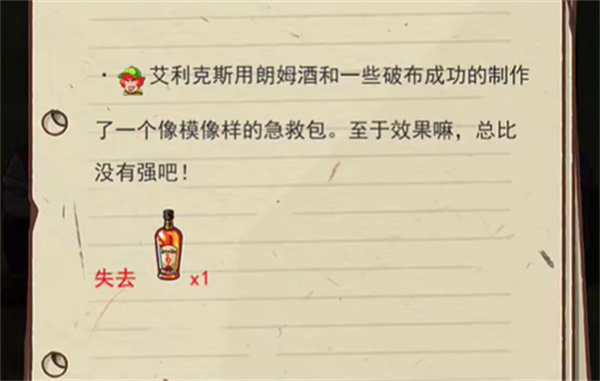 ·艾利克斯用朗姆酒和一些破布成功的制作
了一个像模像样的急救包。至于效果嘛，总比
没有强吧！
失去 x1